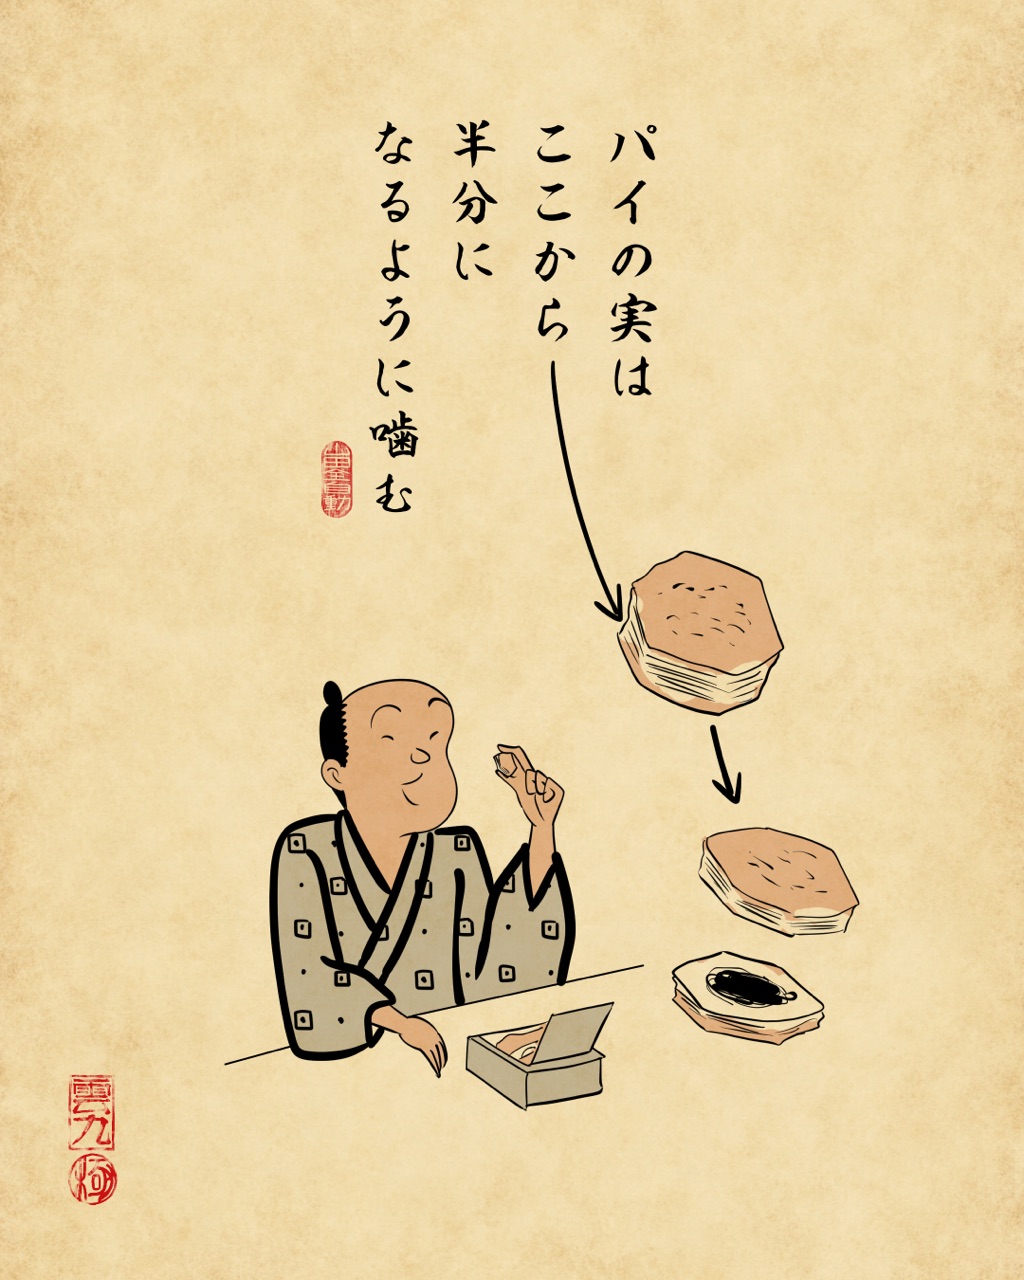 パイの実は
ここから
半分に
なるように噛む